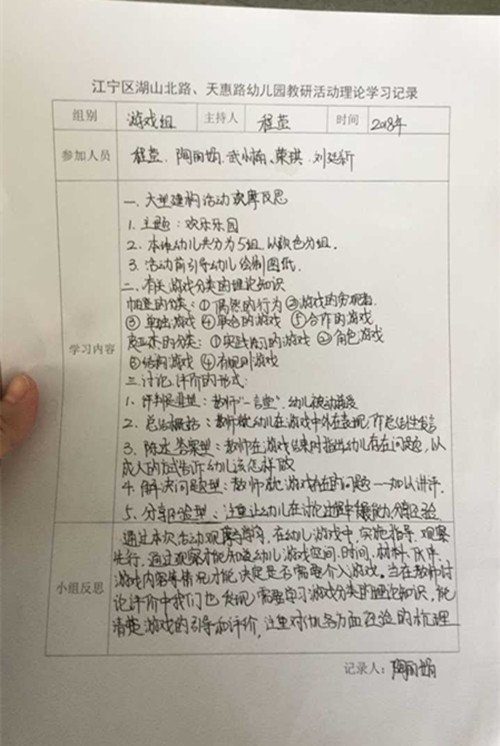 江宁区湖山北路、天惠路幼儿园教研活动理论学习记录
组别 游戏组 主持人 程萱 时间 2018年
参加人员 程萱、陶丽娟、武 荣琪、刘廷新
学习内容
一、大型建构活动观摩反思
1、主题：欢乐乐园
2、本班幼儿共分为5组，以颜色分组。
3、活动前引导幼儿绘制图纸。
二、有关游戏分类的理论知识
帕登的分类：①偶然的行为 ②游戏的旁观者
③单独游戏 ④联合的游戏 ⑤合作的游戏
皮亚杰的分类：①实践练习的游戏 ②角色游戏
③结构游戏 ④有规则游戏
三、讨论评价的形式：
1、评判是非型：教师“一言堂”，幼儿被动接受
2、总结概括：教师就幼儿在游戏中外在表现，作总结性发言
3、陈述答案型：教师在游戏结束时指出幼儿存在问题，以
成人的方式告诉幼儿该怎样做
4、解决问题型：教师就游戏存在的问题一一加以讲评。
5、分享体验型：注重让幼儿在讨论过程中 能力、分享经验
小组反思
通过本次活动观摩学习，在幼儿游戏中，实施指导，观察
先行，通过观察才能知道幼儿游戏空间、时间、材料、伙伴、
游戏内容等情况才能决定是否需要介入游戏。当在教师讨
论评价中我们也发现需要学习游戏分类的理论知识，能
清楚游戏的引导和评价，注重对幼儿各方面经验的梳理
记录人：陶丽娟